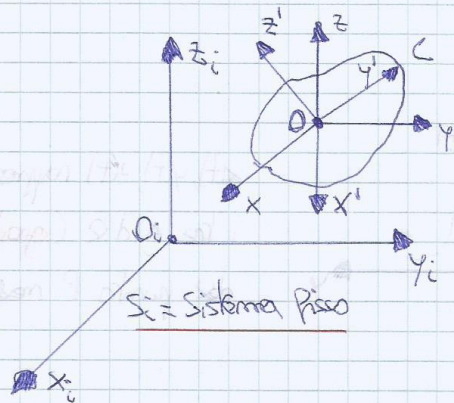 Z'
Z
Zi
C
Y'
O
Y
X
X'
Oi
Yi
Si = Sistema fisso
Xi